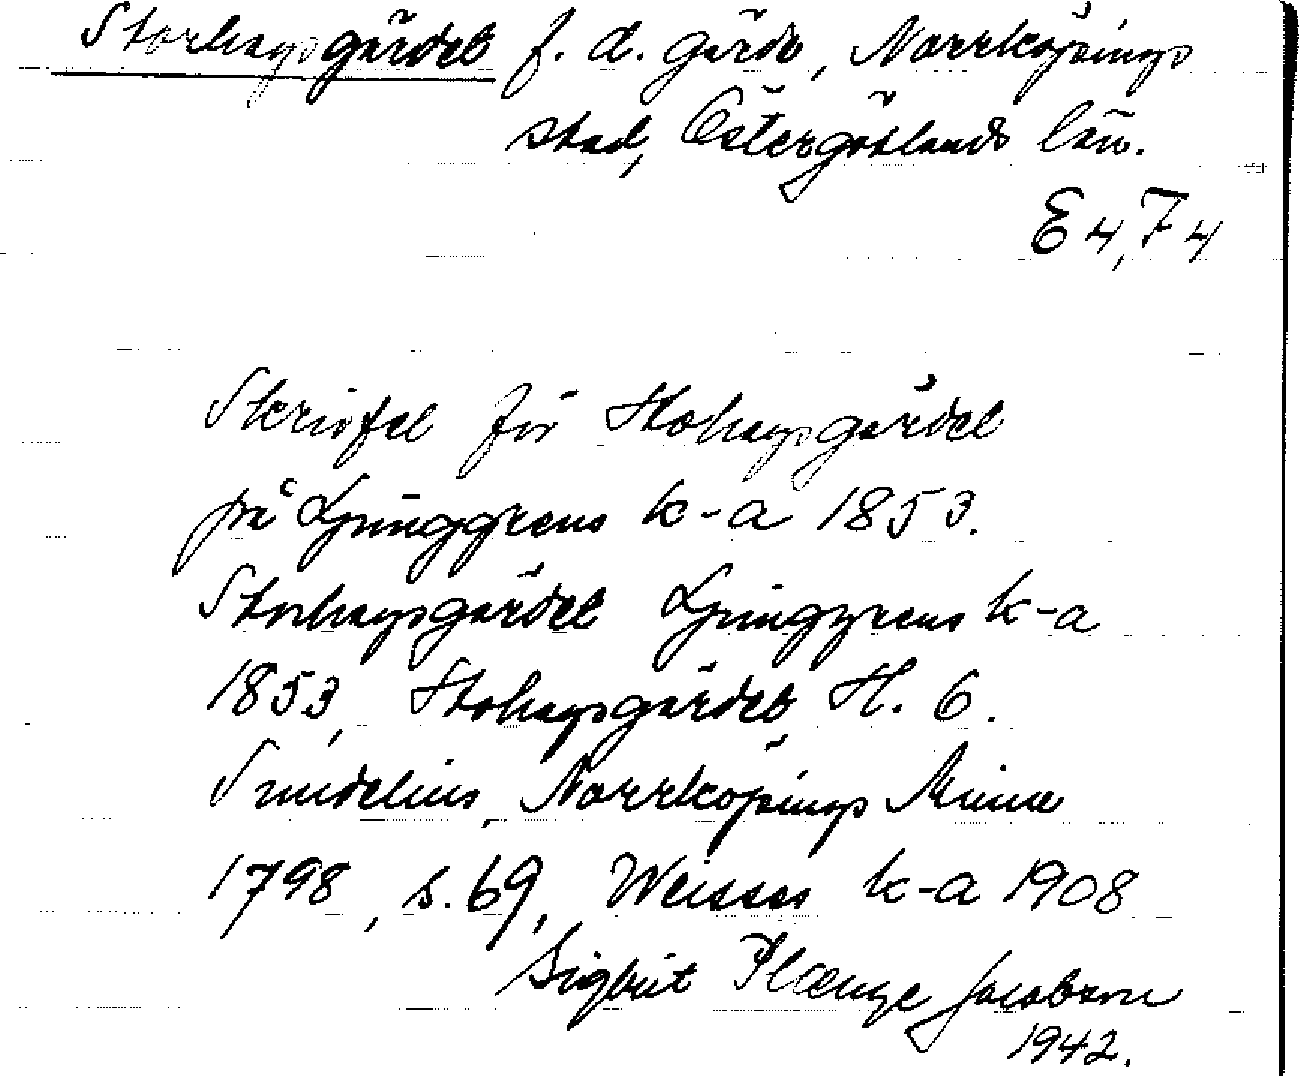 Storhagsgärdet f. d. gärde, Norrköpings
stad, Östergötlands län.
E 4, 74
Skrivfel för Stohagsgärdet
på Ljunggrens k-a 1853.
Storhagsgärdet Ljunggrens k-a
1853, Stohagsgärdet, H. 6.
Sundelius, Norrköpings Minne
1798, s. 69, Weisses k-a 1908
Sigbrit Plænge Jacobson
1942.